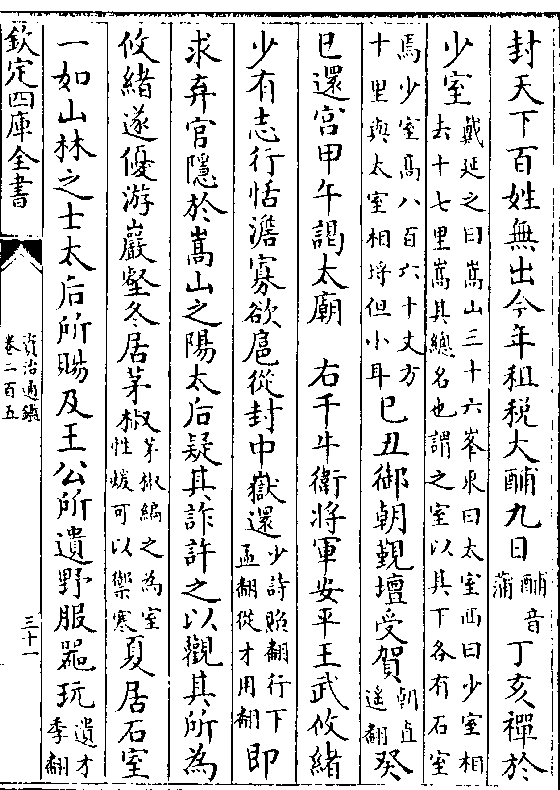 封天下百姓無出今年租稅大酺九日酺音蒲丁亥禪於
少室戴延之曰嵩山三十六峯東曰太室西曰少室相去十七里嵩其總名也謂之室以其下各有石室
焉少室高八百六十丈方十里與太室相埒但小耳己丑御朝覲壇受賀朝直遥翻癸
巳還宫甲午謁太廟　右千牛衛將軍安平王武攸緒
少有志行恬澹寡欲扈從封中嶽還少詩照翻行下孟翻從才用翻即
求弃官隱於嵩山之陽太后疑其詐許之以觀其所為
攸緒遂優游巖壑冬居茅椒茅椒編之為室性煖可以禦寒夏居石室
一如山林之士太后所賜及王公所遺野服器玩遺才季翻
欽定四庫全書
資治通鑑
卷二百五
三十一